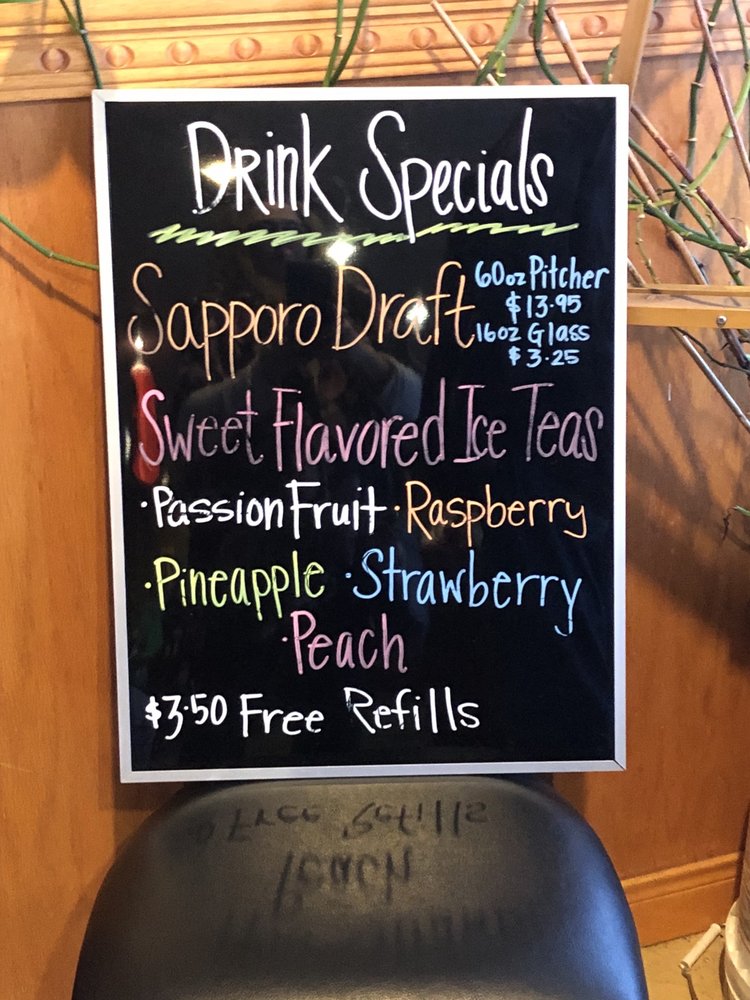 Drink Specials
Sapporo Draft
60oz Pitcher
$13.95
16oz Glass
$3.25
Sweet Flavored Ice Teas
·Passion Fruit ·Raspberry
·Pineapple ·Strawberry
·Peach
$3.50 Free Refills